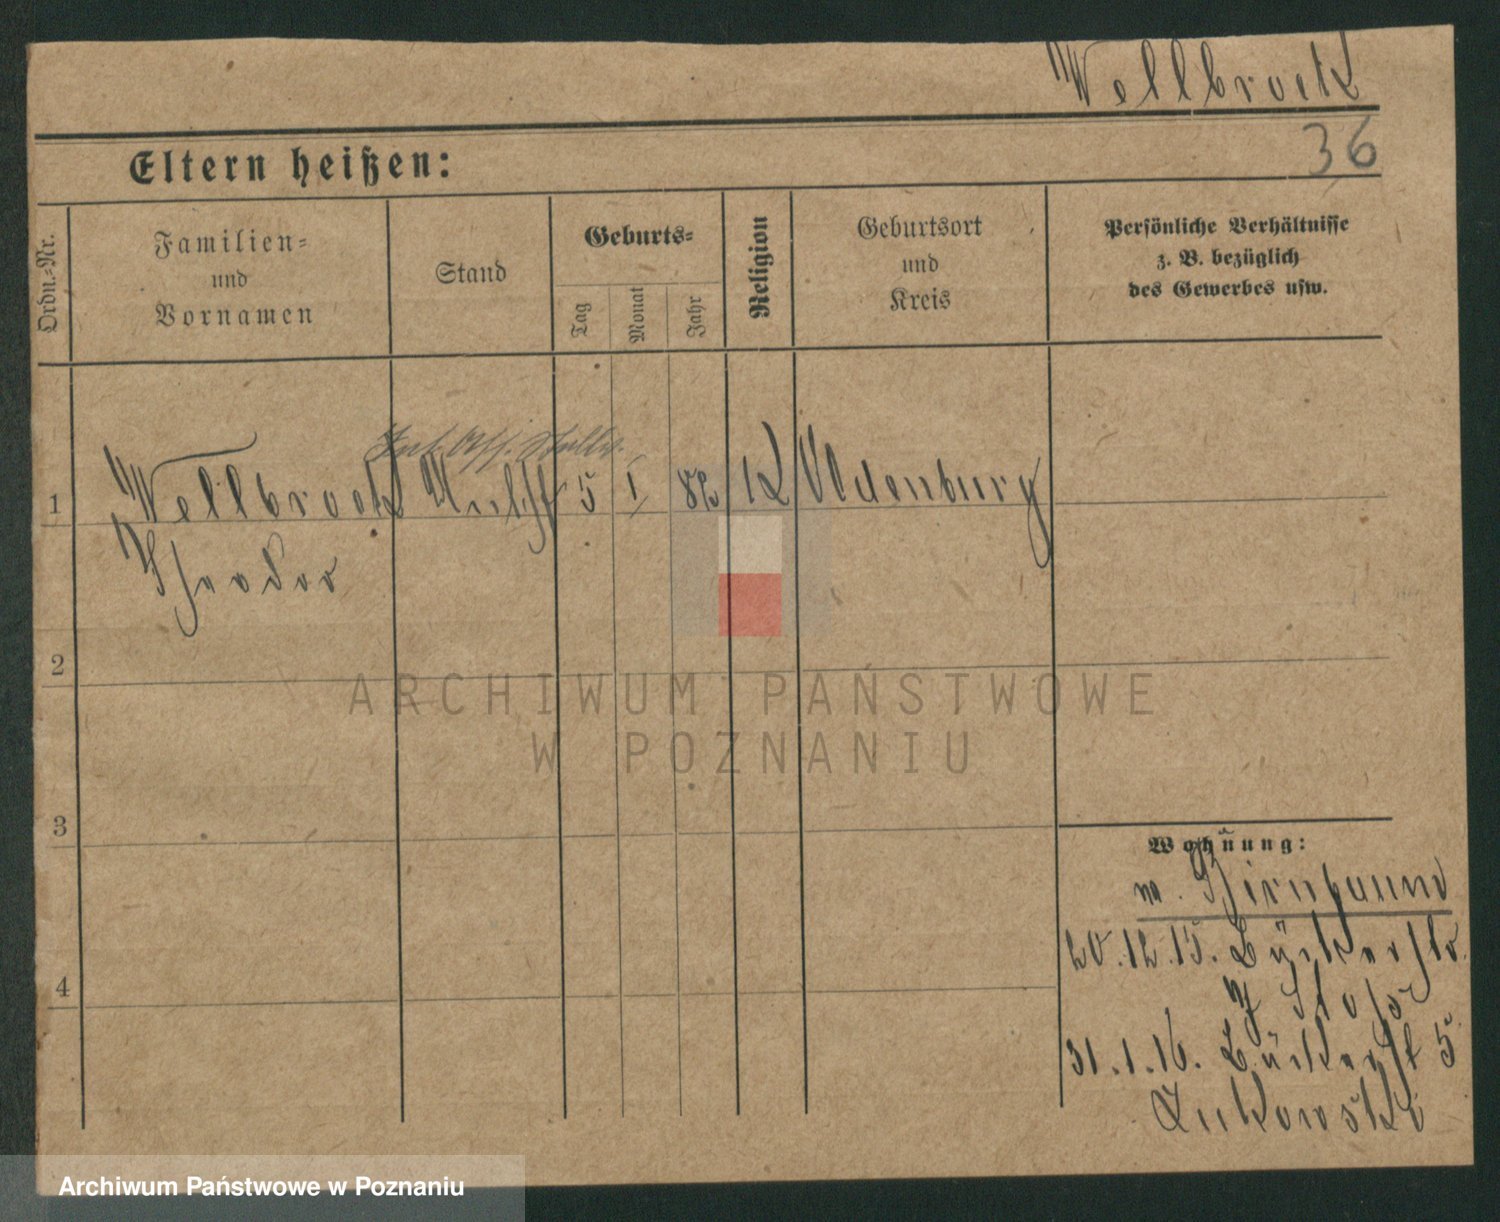 Wellbrock
36
Eltern heißen:
Ordn.-Nr.
Familien-
und
Vornamen
Stand
Geburts-
Tag
Monat
Jahr
Religion
Geburtsort
und
Kreis
Persönliche Verhältnisse
z. B. bezüglich
des Gewerbes usw.
1 Wellbrock 5 I 82 K Oldenburg
Theodor
2
3
4
Wohnung:
v. Birnbaum
20.12.15. Bäckerstr.
31.1.16. Bäckerst 5
Zukowski
ARCHIWUM PAŃSTWOWE
W POZNANIU
Archiwum Państwowe w Poznaniu